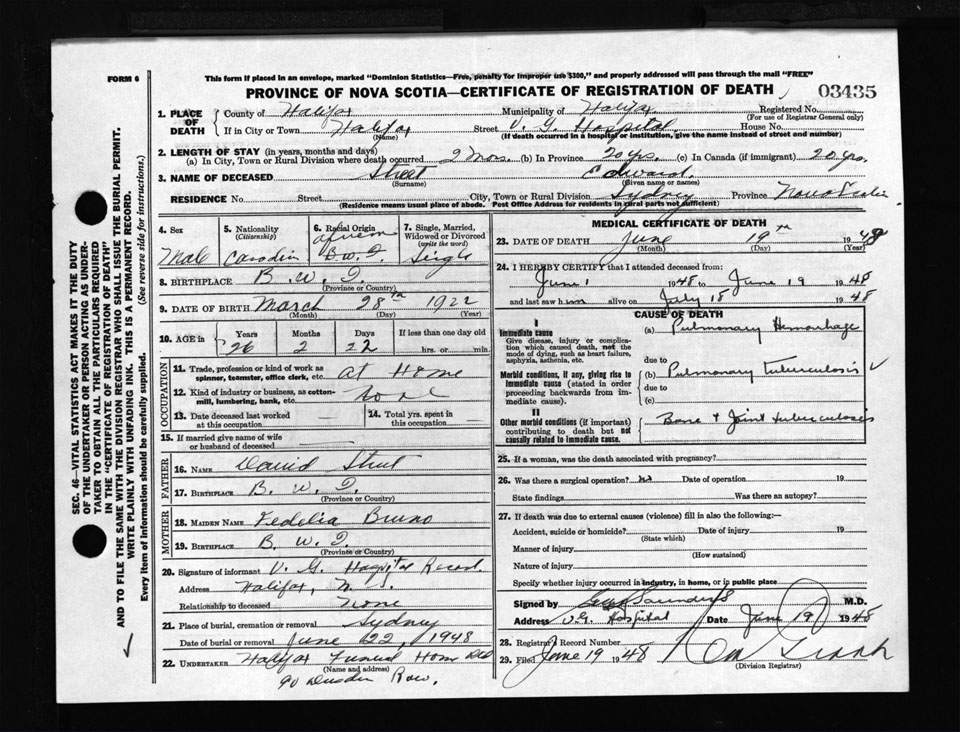 FORM 6
This form if placed in an envelope, marked "Dominion Statistics—Free, penalty for improper use $300," and properly addressed will pass through the mail "FREE"
PROVINCE OF NOVA SCOTIA—CERTIFICATE OF REGISTRATION OF DEATH 03435
1. PLACE OF DEATH County of Halifax Municipality of Halifax Registered No.
(For use of Registrar General only)
If in City or Town Halifax Street V. G. Hospital House No.
(Name) (If death occurred in a hospital or institution, give the name instead of street and number)
2. LENGTH OF STAY (in years, months and days)
(a) In City, Town or Rural Division where death occurred 2 Mos. (b) In Province 20 yrs. (c) In Canada (if immigrant) 20 yrs.
3. NAME OF DECEASED Street Edward
(Surname) (Given name or names)
RESIDENCE No. Street City, Town or Rural Division Sydney Province Nova Scotia
(Residence means usual place of abode. Post Office Address for residents in rural parts not sufficient)
4. Sex 5. Nationality (Citizenship) 6. Racial Origin 7. Single, Married, Widowed or Divorced (write the word)
Male African B.W.I. Single
8. BIRTHPLACE B. W. I.
(Province or Country)
9. DATE OF BIRTH March 28th 1922
(Month) (Day) (Year)
10. AGE in Years Months Days If less than one day old
26 2 22 hrs. or min.
11. Trade, profession or kind of work as spinner, teamster, office clerk, etc. At Home
12. Kind of industry or business, as cotton-mill, lumbering, bank, etc.
13. Date deceased last worked at this occupation 14. Total yrs. spent in this occupation
15. If married give name of wife or husband of deceased
FATHER
16. NAME David Street
17. BIRTHPLACE B. W. I.
(Province or Country)
MOTHER
18. MAIDEN NAME Fedelia Bruno
19. BIRTHPLACE B. W. I.
(Province or Country)
20. Signature of informant V. G. Hospital Record
Address Halifax, N. S.
Relationship to deceased None
21. Place of burial, cremation or removal Sydney
Date of burial or removal June 22, 1948
22. UNDERTAKER Halifax Funeral Home
(Name and address)
90 Dresden Row.
MEDICAL CERTIFICATE OF DEATH
23. DATE OF DEATH June 19th 1948
(Month) (Day) (Year)
24. I HEREBY CERTIFY that I attended deceased from:
June 1 1948 to June 19 1948
and last saw him alive on July 18 1948
CAUSE OF DEATH
I
Immediate cause (a) Pulmonary Hemorrhage
Give disease, injury or complication which caused death, not the mode of dying, such as heart failure, asphyxia, asthenia, etc.
due to
Morbid conditions, if any, giving rise to immediate cause (stated in order proceeding backwards from immediate cause).
(b) Pulmonary Tuberculosis
due to
(c)
II
Other morbid conditions (if important) contributing to death but not causally related to immediate cause.
Bone & Joint tuberculosis
25. If a woman, was the death associated with pregnancy?
26. Was there a surgical operation? no Date of operation 19
State findings Was there an autopsy?
27. If death was due to external causes (violence) fill in also the following:—
Accident, suicide or homicide? Date of injury 19
(State which)
Manner of injury
(How sustained)
Nature of injury
Specify whether injury occurred in industry, in home, or in public place
Signed by Saunders M.D.
Address V.G. Hospital Date June 19 1948
28. Registrar's Record Number
29. Filed June 19 1948
(Division Registrar)
SEC. 46—VITAL STATISTICS ACT MAKES IT THE DUTY
OF THE UNDERTAKER OR PERSON ACTING AS UNDER-
TAKER TO OBTAIN ALL THE PARTICULARS REQUIRED
IN THE "CERTIFICATE OF REGISTRATION OF DEATH"
AND TO FILE THE SAME WITH THE DIVISION REGISTRAR WHO SHALL ISSUE THE BURIAL PERMIT.
WRITE PLAINLY WITH UNFADING INK. THIS IS A PERMANENT RECORD.
Every item of information should be carefully supplied. (See reverse side for instructions.)